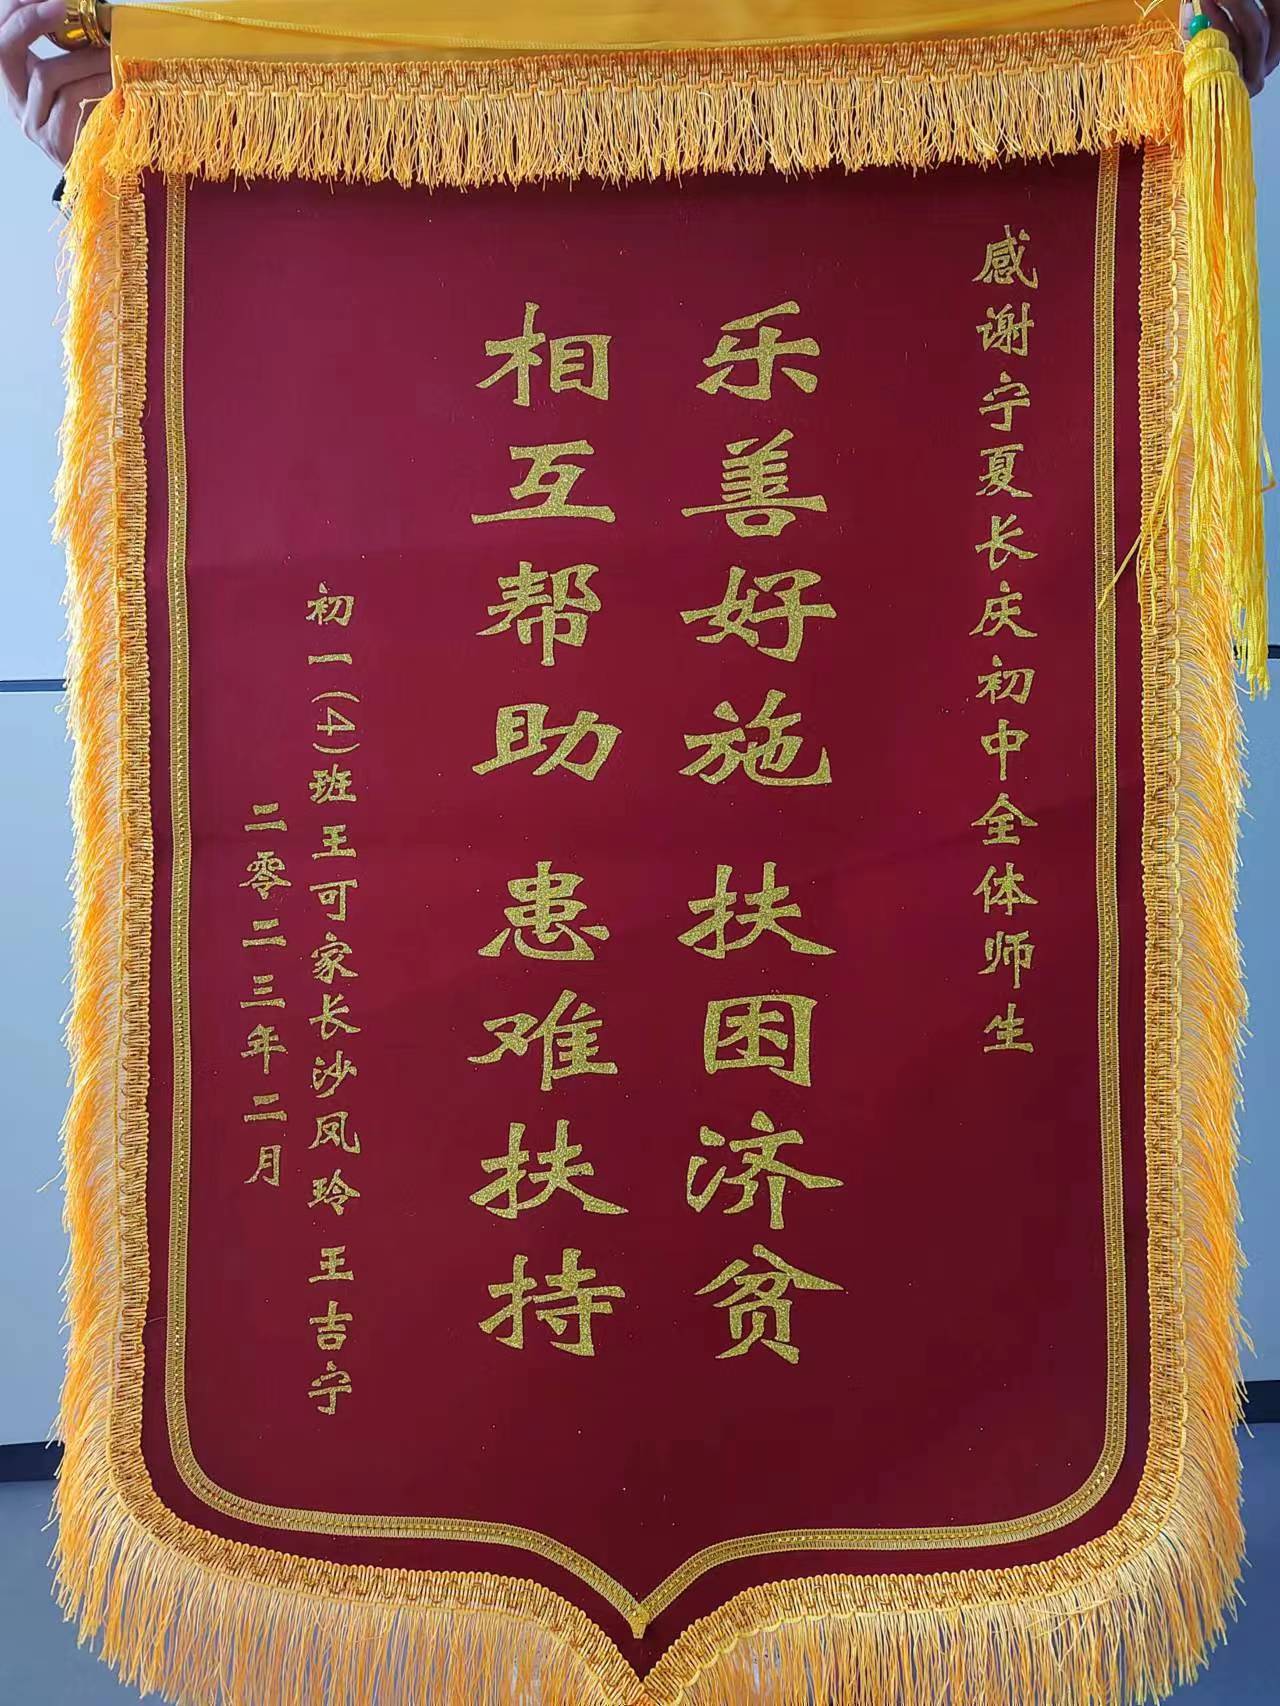 感谢宁夏长庆初中全体师生
乐善好施 扶困济贫
相互帮助 患难扶持
初一(4)班王可家长沙凤玲 王吉宁
二零二三年二月